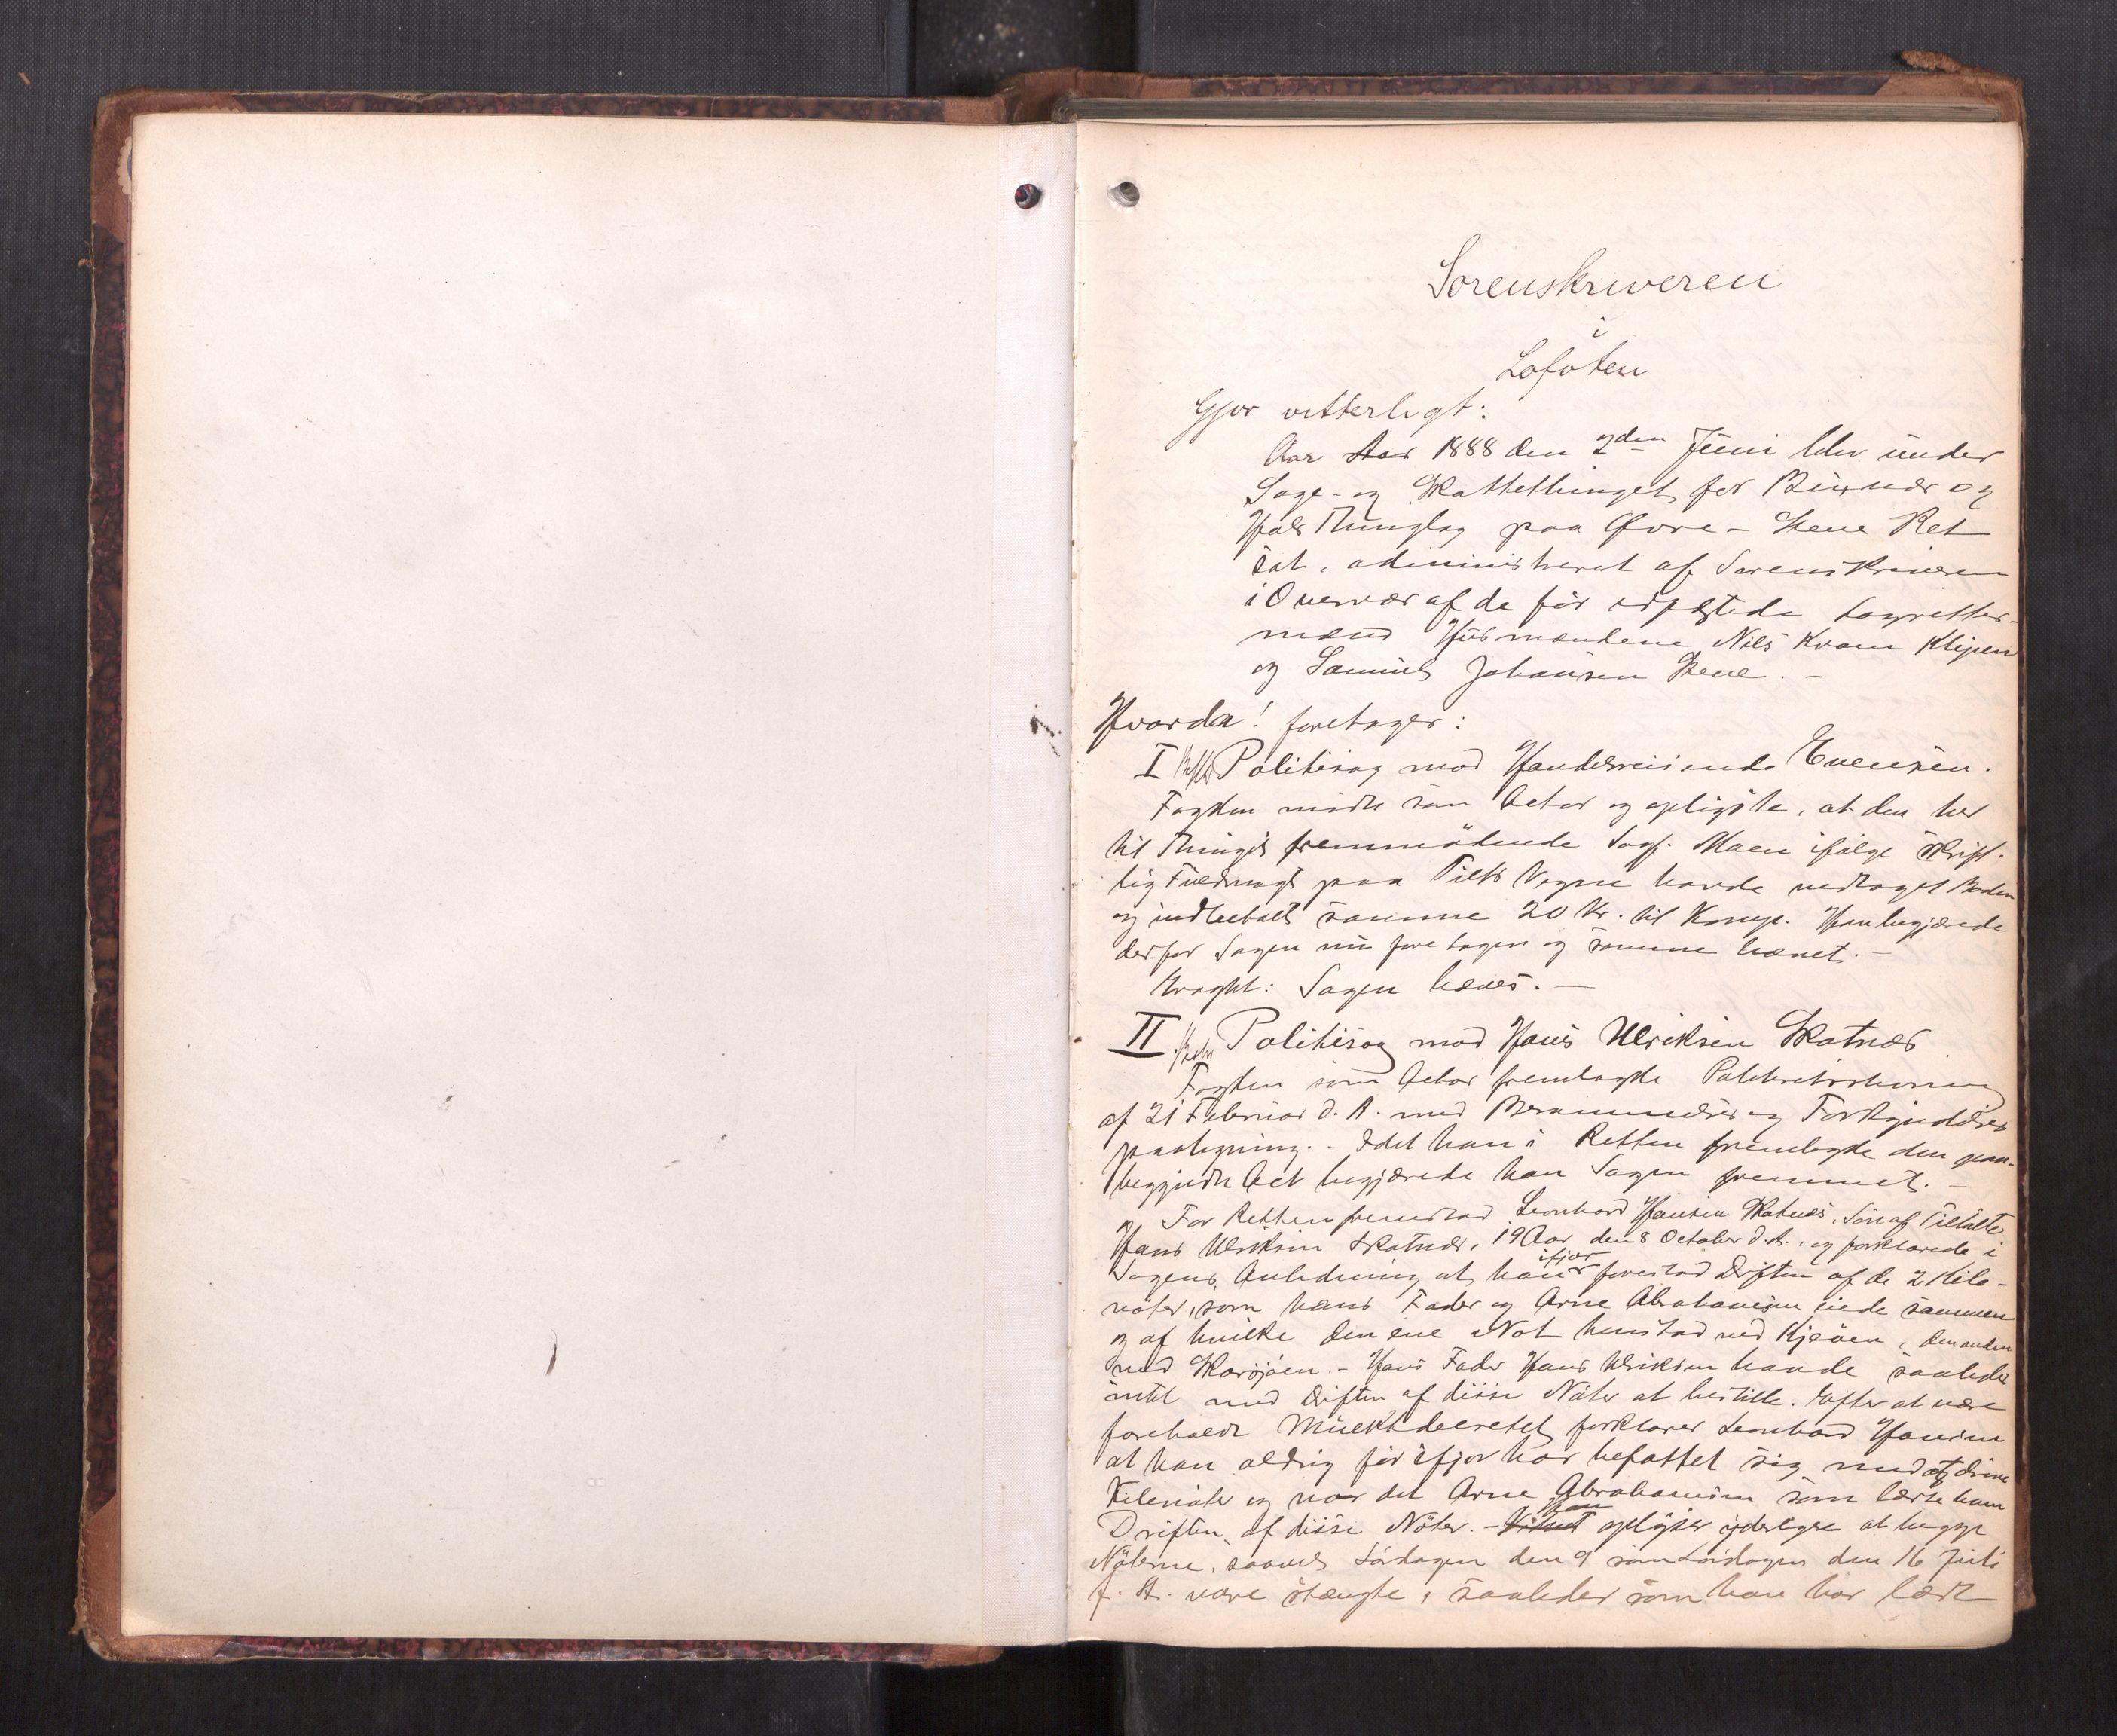 Sorenskriveren
i
Lofoten
Gjør vitterligt:
Aar 1888 den 2den Juni blev under
Sage- og Skattethinget for Buxnæs og
Hols Thinglag paa Øvre-Stene Ret
sat, administreret af Sorenskriveren
i Overvær af de før Lagrettes-
mænd Husmændene Nils Kram Klippen
og Samuel Johansen Stene. –
Hvorda! foretages:
I Politisag mod Handelsreisende Evensen.
Fogden mødte som Actor og oplyste, at den her
til Thinget fremmødende Sagf. Maen ifølge skrift-
lig Fuldmagt paa Tilts Vegne havde vedtaget Boden
og indbetalt samme 20 Kr. til Kongs. Han begjærede
derfor Sagen nu foretagen og samme hævet. –
Eragtet: Sagen hæves. –
II Politisag mod Hans Ulriksen Skotnæs
Fogden som Actor fremlagde
af 21 Februar d. A. med Berammelses og Forkyndelses
paategning. – Idet han i Retten fremlagde den paa-
beggyndte Act begjærede han Sagen fremmet. –
For Retten fremstod Leonhard Hansen Skotnæs, Søn af Tiltalte
Hans Ulriksen Skotnæs, 19 Aar den 8 October d. A., og forklarede i
Sagens Anledning at han ifjor forestod Driften af de 2 Kile-
nøter, som hans Fader og Arne Abrahamsen eiede sammen
og af hvilke den ene Not henstod ved Kjeøen, den anden
ved Skarsjøen. – Hans Fader Hans Ulriksen havde saaledes
intet med Driften af disse Nøter at bestille. Efter at være
foreholdt Mulktdecretet forklarer Leonhard Hansen
at han aldrig før ifjor har befattet sig med at drive
Kilenøter og var det Arne Abrahamsen som lærte ham
Driften af disse Nøter. – Vidnet Han oplyser yderligere at begge
Nøterne, saavel Lørdagen den 9 som Lørdagen den 16 Juli
f. A. vare stængte, saaledes som han har lært